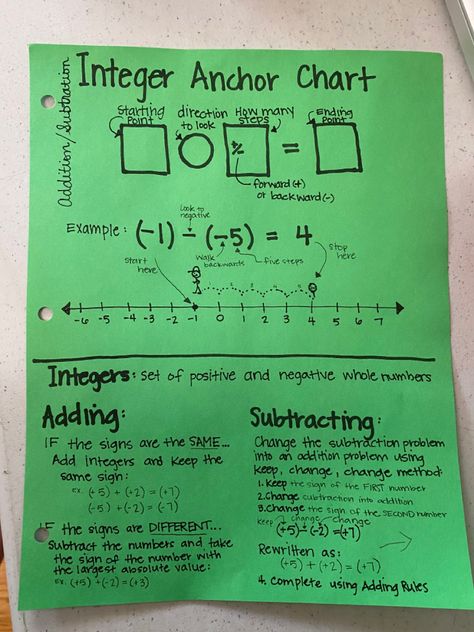 Addition/Subtration
Integer Anchor Chart
Starting Point
direction to look
How many steps
Ending Point
+/-
=
forward (+)
or backward (-)
look to negative
Example: (-1) - (-5) = 4
start here
walk backwards
five steps
stop here
-6 -5 -4 -3 -2 -1 0 1 2 3 4 5 6 7
Integers: set of positive and negative whole numbers
Adding:
IF the signs are the SAME...
Add integers and keep the
same sign:
ex. (+5) + (+2) = (+7)
(-5) + (-2) = (-7)
IF the signs are DIFFERENT...
Subtract the numbers and take
the sign of the number with
the largest absolute value:
Ex. (+5) + (-2) = (+3)
Subtracting:
Change the subtraction problem
into an addition problem using
keep, change, change method:
1. Keep the sign of the FIRST number
2. Change subtraction into addition
3. Change the sign of the SECOND number
keep change change
(+5) - (-2) = (+7)
Rewritten as:
(+5) + (+2) = (+7)
4. Complete using Adding Rules